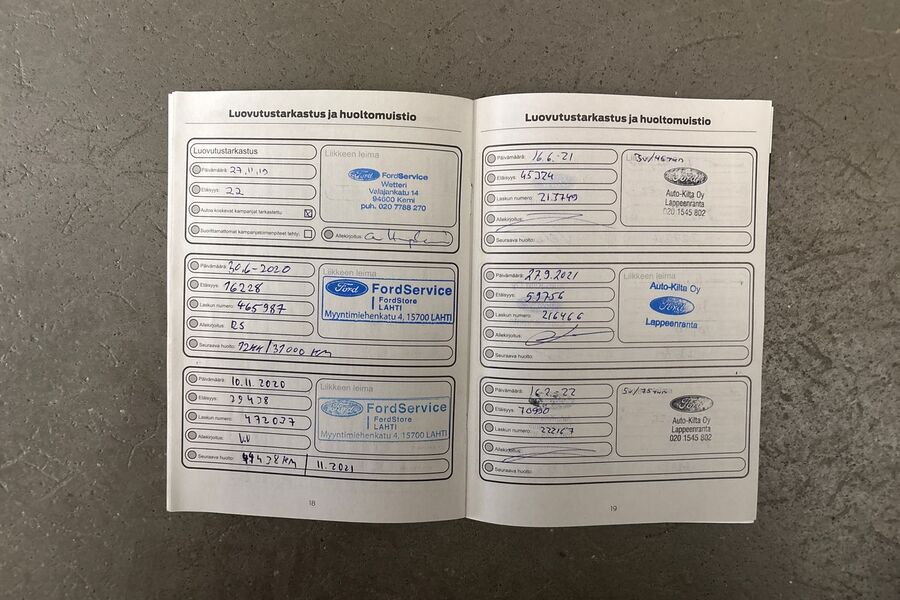 Luovutustarkastus ja huoltomuistio
Luovutustarkastus
Päivämäärä: 27.11.19
Etäisyys: 22
Autoa koskevat kampanjat tarkastettu
Suorittamattomat kampanjatoimenpiteet tehty
Liikkeen leima
Ford FordService
Wetteri
Valajankatu 14
94600 Kemi
puh. 020 7788 270
Allekirjoitus:
Päivämäärä: 30.6-2020
Etäisyys: 16228
Laskun numero: 465987
Allekirjoitus: RS
Seuraava huolto: 12KK/31000 KM
Liikkeen leima
Ford FordService
FordStore
LAHTI
Myyntimiehenkatu 4, 15700 LAHTI
Päivämäärä: 10.11.2020
Etäisyys: 29438
Laskun numero: 472037
Allekirjoitus:
Seuraava huolto: 49438 KM / 11.2021
Liikkeen leima
Ford FordService
FordStore
LAHTI
Myyntimiehenkatu 4, 15700 LAHTI
18
Luovutustarkastus ja huoltomuistio
Päivämäärä: 16.6.-21
Etäisyys: 45324
Laskun numero: 213749
Allekirjoitus:
Seuraava huolto:
Ford
Auto-Kilta Oy
Lappeenranta
020 1545 802
Päivämäärä: 27.9.2021
Etäisyys: 59756
Laskun numero: 216466
Allekirjoitus:
Seuraava huolto:
Liikkeen leima
Auto-Kilta Oy
Ford
Lappeenranta
Päivämäärä: 16.2.-22
Etäisyys: 70990
Laskun numero: 222167
Allekirjoitus:
Seuraava huolto:
Ford
Auto-Kilta Oy
Lappeenranta
020 1545 802
19